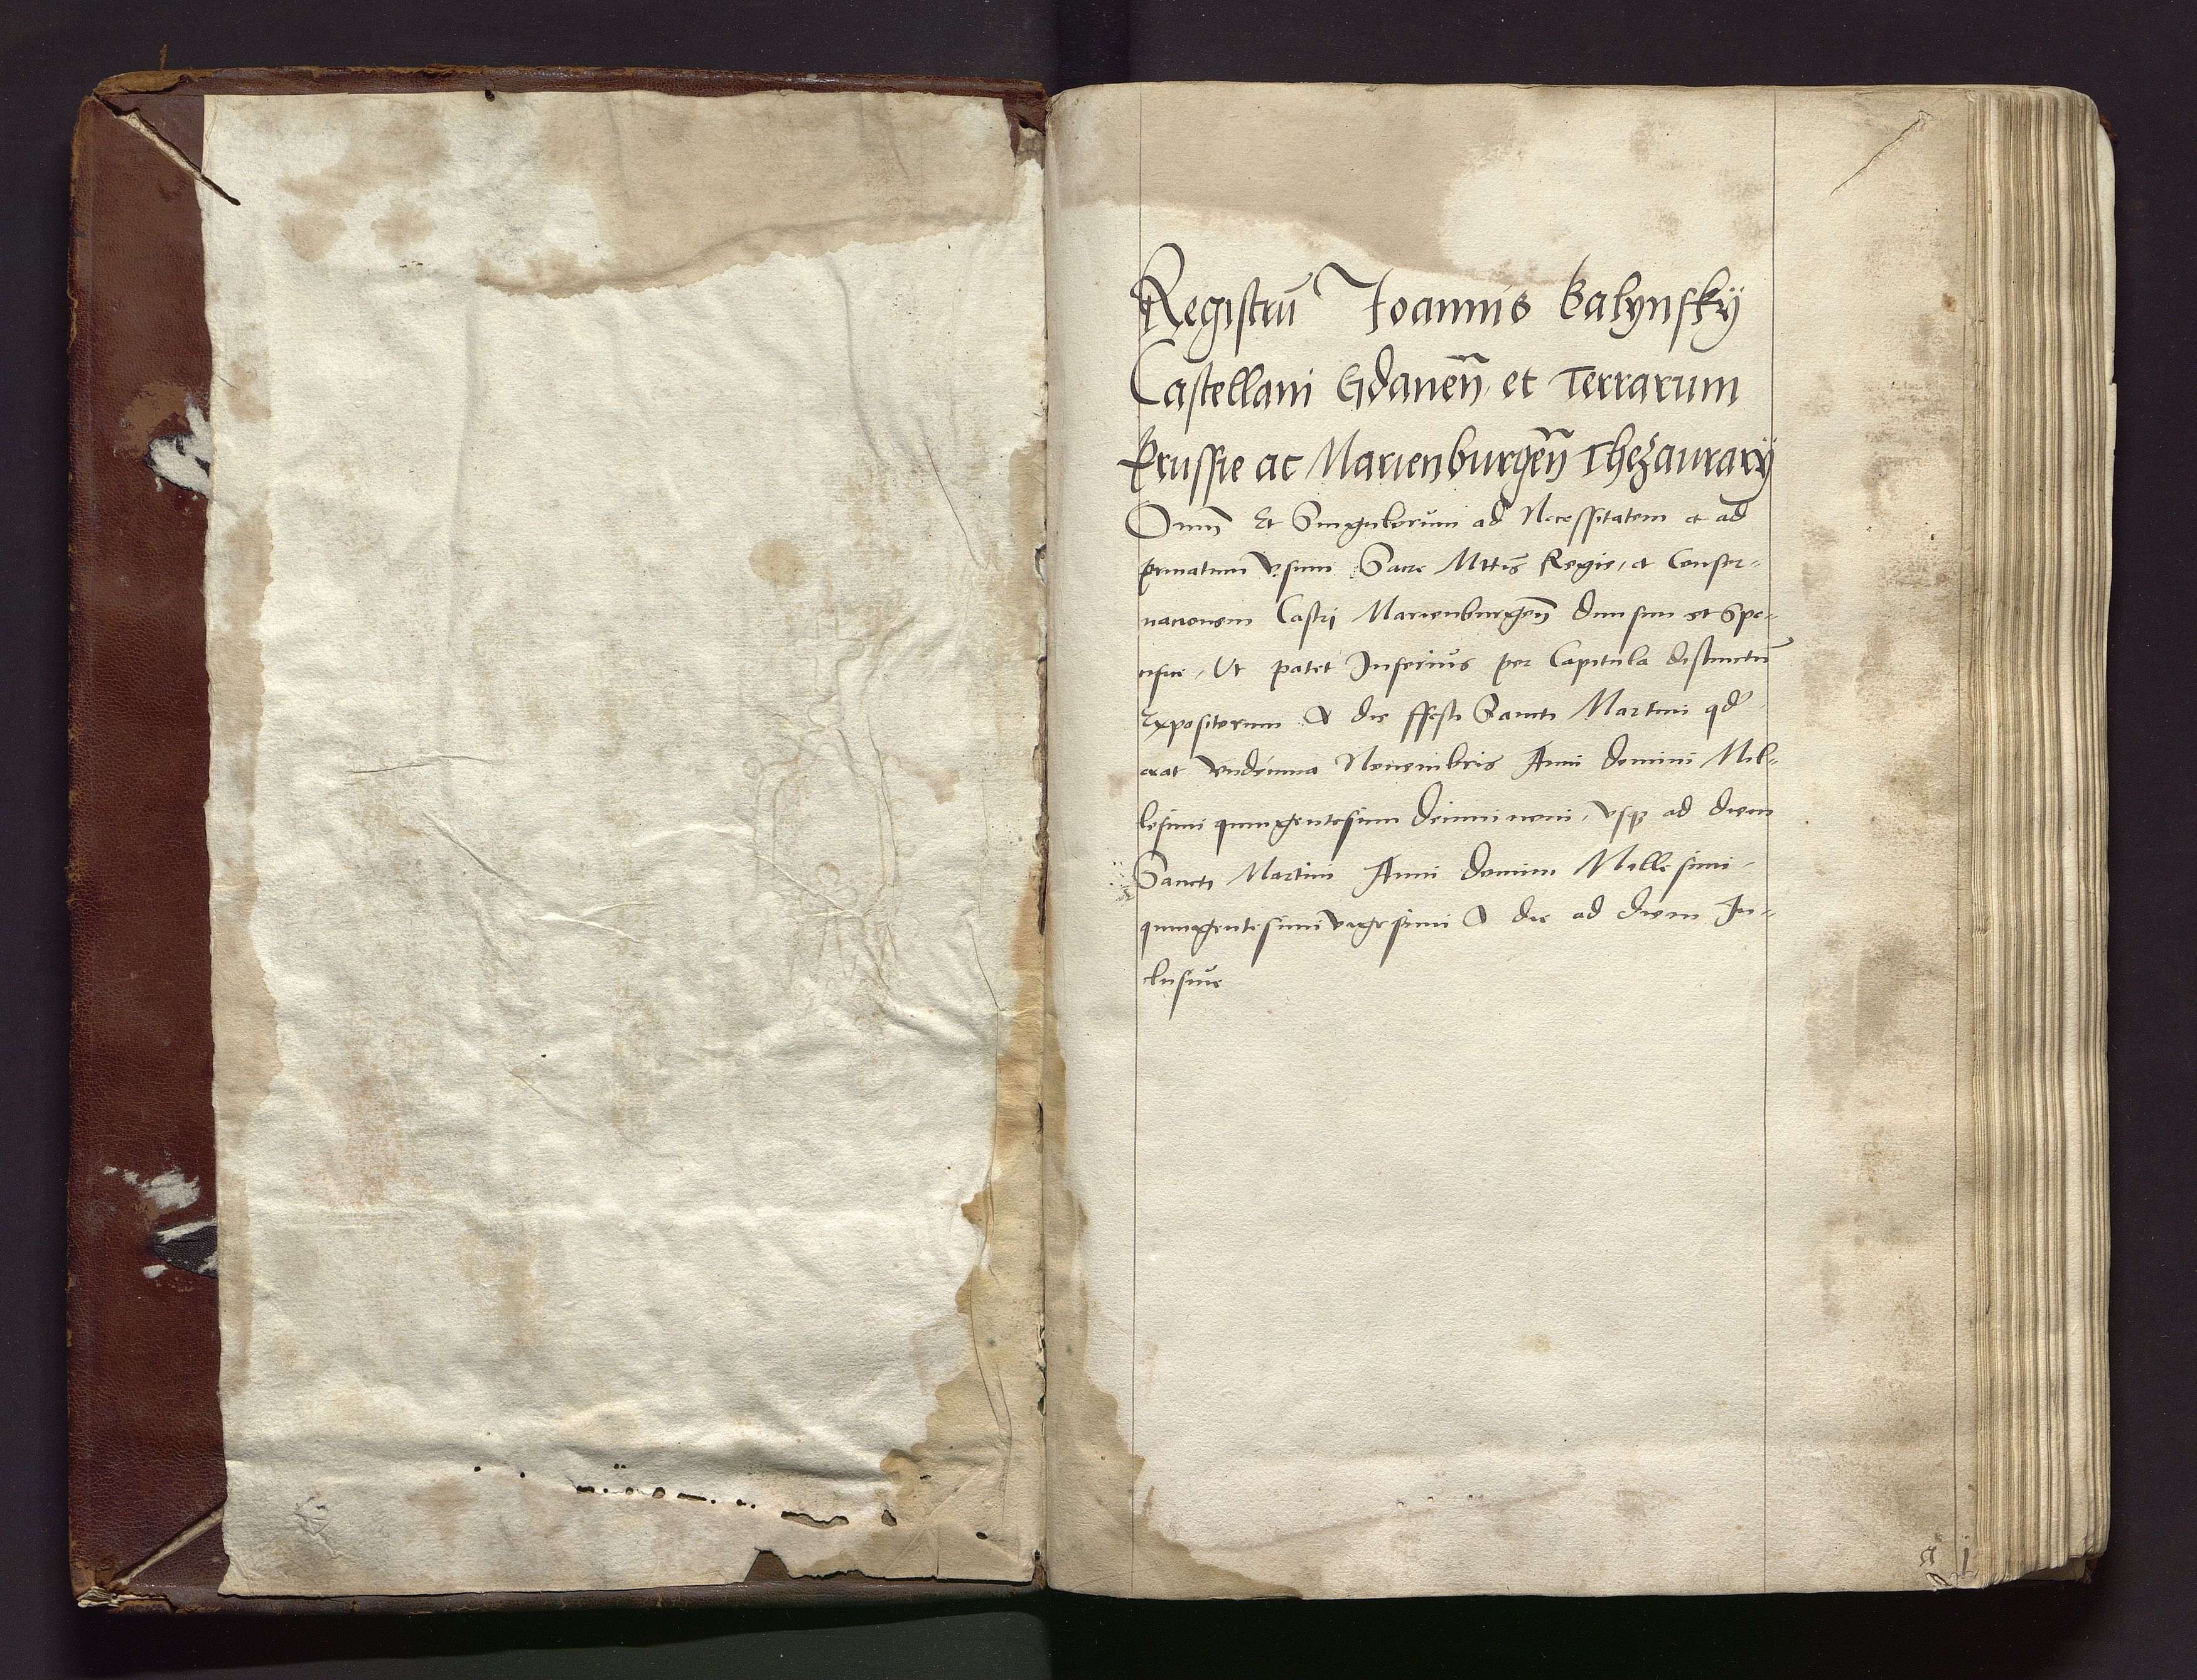 Registrū Joannis Balynsky
Castellani Gdaneñ et Terrarum
Prussie ac Marienburgeñ Thezaurarÿ
Omniū Et Singulorum ad Necessitatem et ad
priuatum vsum Sacre Mttis Regie, et Conser-
uacionem Castri Marienburgeñ diuisim et Spe-
cifice, Ut patet Inferius per Capitula distinctū
Expositorum A die ffesti Sancti Martini qd
erat vndecima Nouembris Anni domini Mil-
lesimi quingentesimi decimi noni, vsqz ad diem
Sancti Martini Anni domini Millesimi
quingentesimi vigesimi A die ad diem In-
clusiue
1